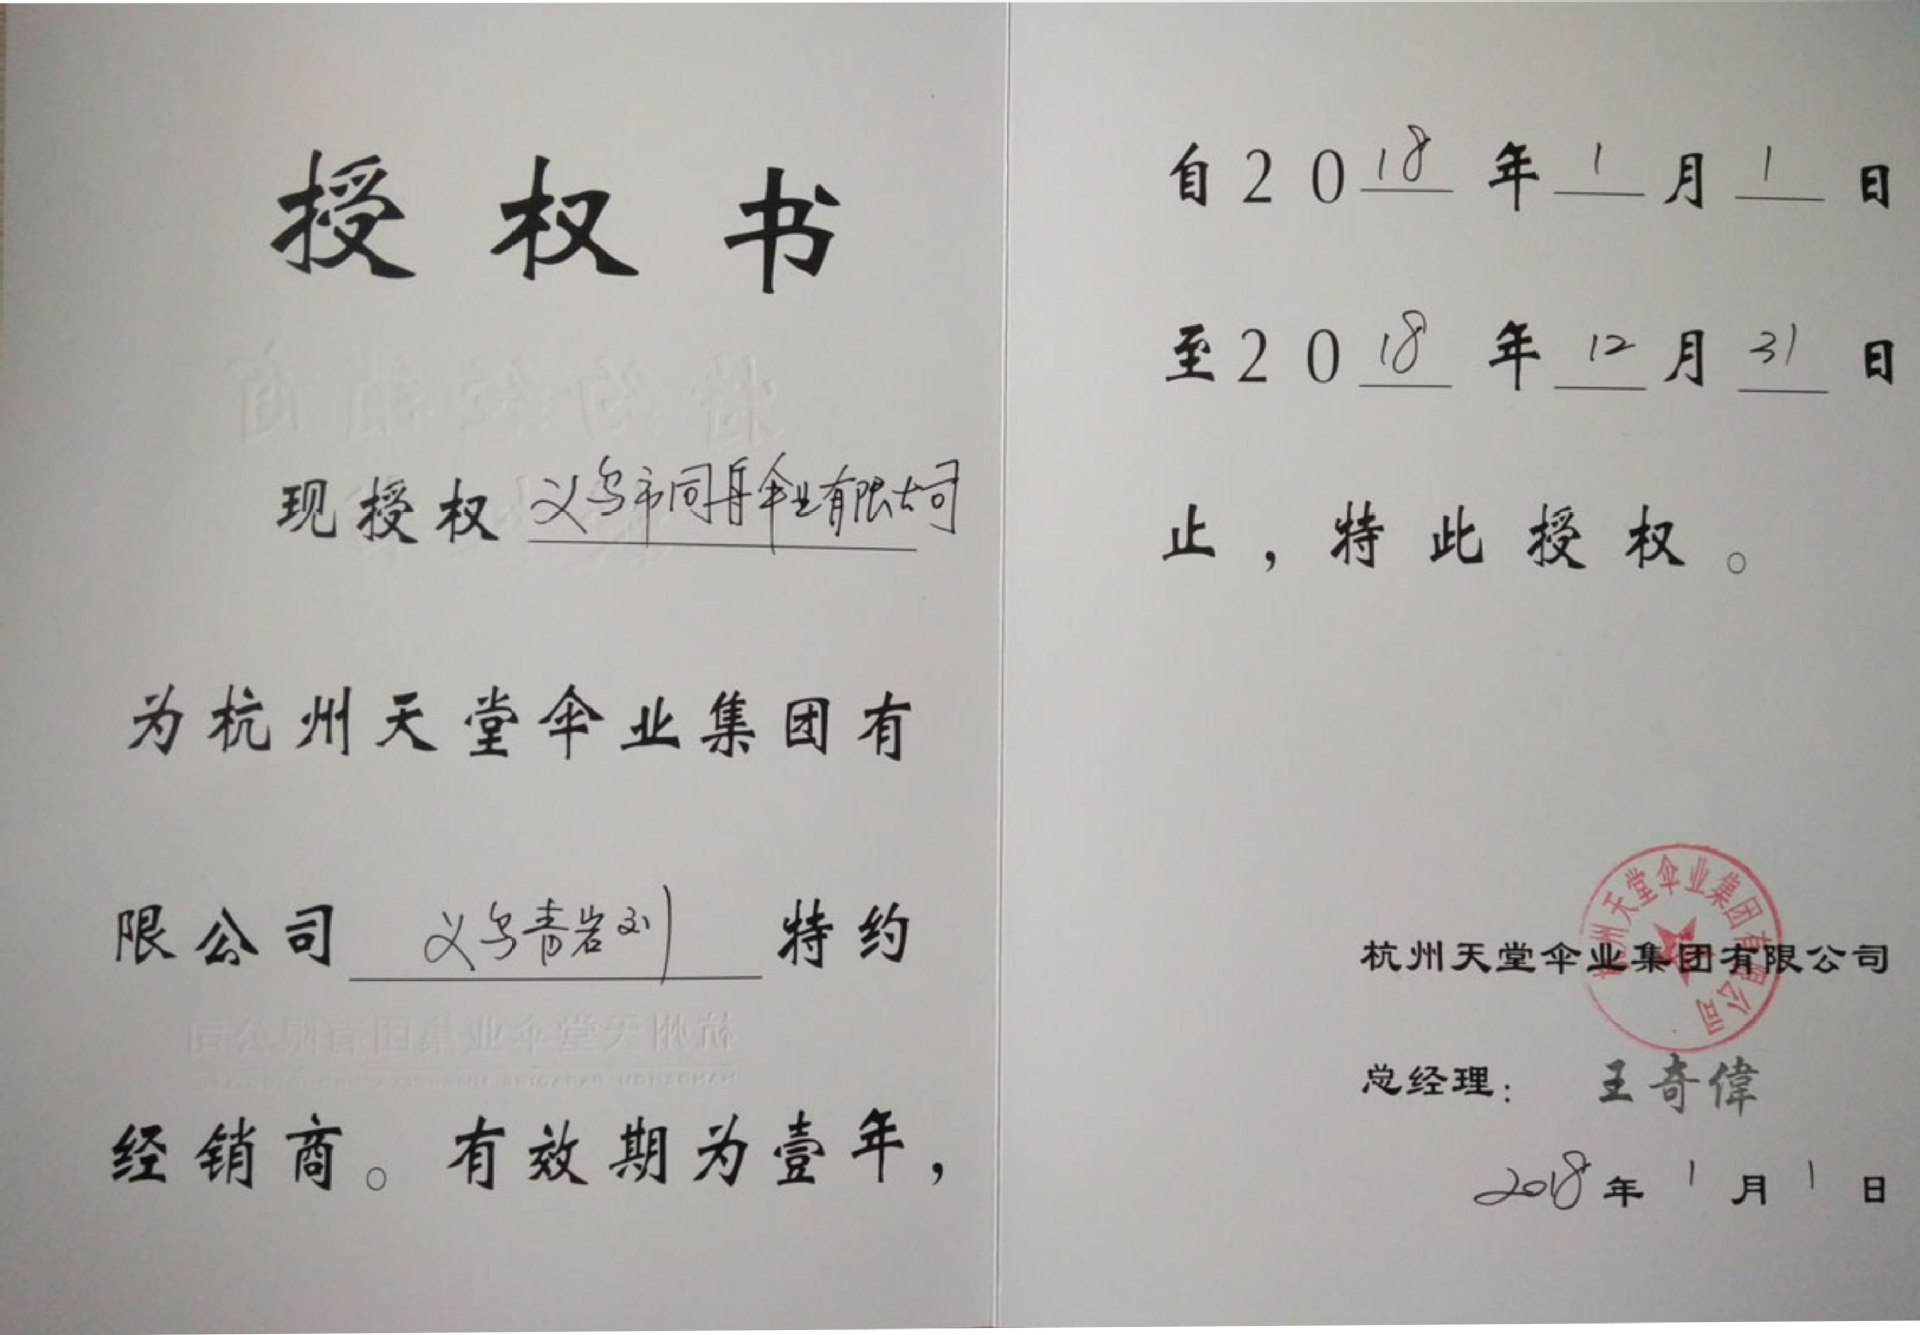 授权书
现授权 义乌市同舟伞业有限公司
为杭州天堂伞业集团有
限公司 义乌青岩刘 特约
经销商。有效期为壹年，
自2018年1月1日
至2018年12月31日
止，特此授权。
杭州天堂伞业集团有限公司
杭州天堂伞业集团有限公司
总经理：王奇偉
2018年1月1日